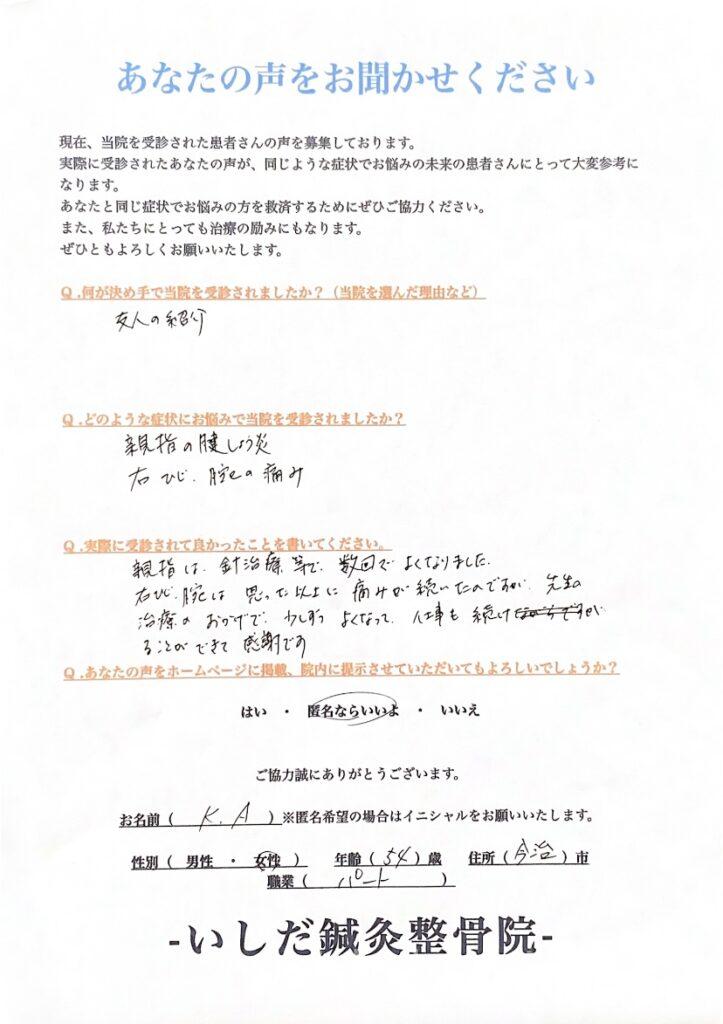 あなたの声をお聞かせください
現在、当院を受診された患者さんの声を募集しております。
実際に受診されたあなたの声が、同じような症状でお悩みの未来の患者さんにとって大変参考に
なります。
あなたと同じ症状でお悩みの方を救済するためにぜひご協力ください。
また、私たちにとっても治療の励みにもなります。
ぜひともよろしくお願いいたします。
Q.何が決め手で当院を受診されましたか？（当院を選んだ理由など）
友人の紹介
Q.どのような症状にお悩みで当院を受診されましたか？
親指の腱しょう炎
右ひじ、腕の痛み
Q.実際に受診されて良かったことを書いてください。
親指は、針治療等で、数回でよくなりました。
右ひじ、腕は思った以上に痛みが続いたのですが、先生の
治療のおかげで、少しずつよくなって、仕事も続け
ることができて感謝です
Q.あなたの声をホームページに掲載、院内に提示させていただいてもよろしいでしょうか？
はい ・ 匿名ならいいよ ・ いいえ
ご協力誠にありがとうございます。
お名前（ K.A ）※匿名希望の場合はイニシャルをお願いいたします。
性別（ 男性 ・ 女性 ） 年齢（ 54 ）歳 住所（ 今治 ）市
職業（ パート ）
-いしだ鍼灸整骨院-